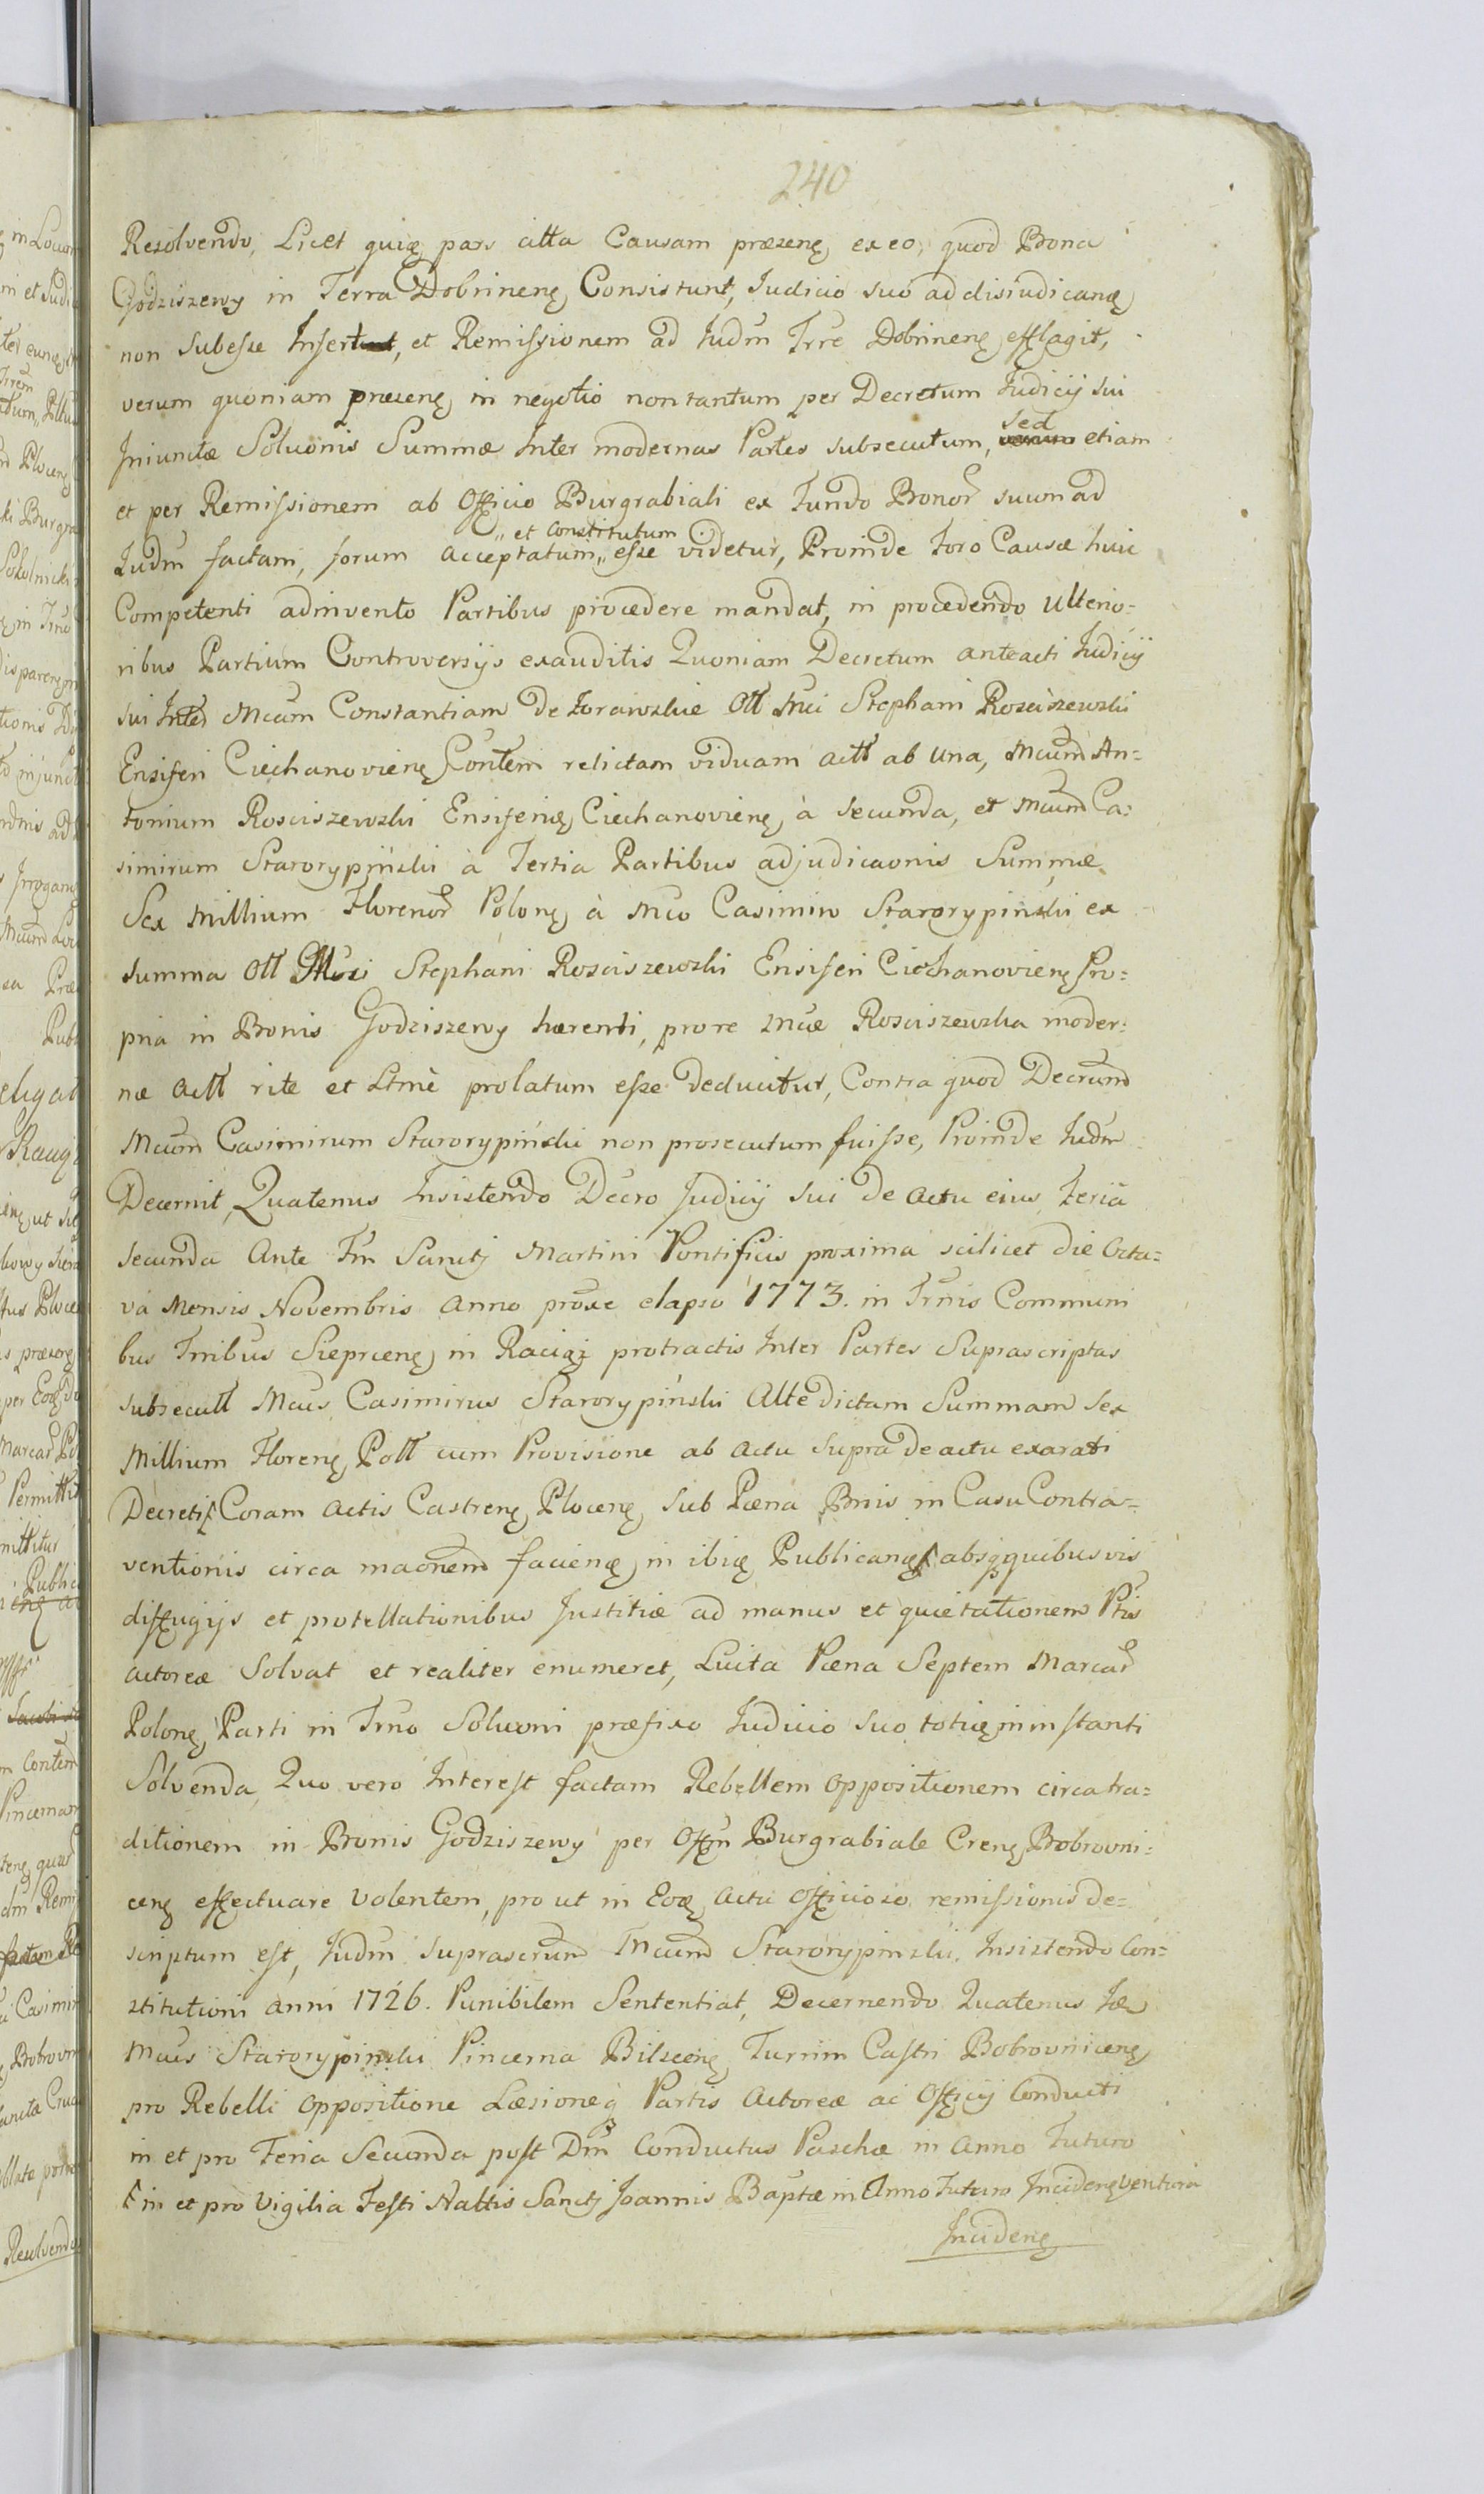 240
Resolvendo, Licet quię pars citta Causam præsenę ex eo, quod Bona
Godziszewy in Terra Dobrinenę Consistunt, Iudicio suo ad disiudicandę
non subesse Insert, et Remissionem ad Iudm Trre Dobrinenę efflagit,
verum quoniam præsenę in negotio non tantum per Decretum Iudicij sui
Iniunctæ Soluonis Summæ Inter modernas Partes subsecutum, sed etiam
et per Remissionem ab Officio Burgrabiali ex Fundo Bonor suum ad
Iudm factam, forum acceptatum „et Constitutum„ esse videtur, Proinde Foro Causæ huic
Competenti adinvento Partibus procedere mandat, in procedendo Ulterio=
ribus Partium Controversijs exauditis Quoniam Decretum anteacti Iudicij
sui Inter Mcam Constantiam de Zorawskie Ott Mci Stephani Rosciszewski
Ensiferi Ciechanovienę Contem relictam viduam actt ab una, Mcum An=
tonium Rosciszewski Ensiferię Ciechanovienę à secunda, et Mcum Ca=
simirum Starorypinski à Tertia Partibus adjudicaonis Summæ
Sex Millium Florenor Polonę à Mco Casimiro Starorypinski ex
summa Ott Mci Stephani Rosciszewski Ensiferi Ciechanovienę Pro=
pria in Bonis Godziszewy hærenti, pro re Mcæ Rosciszewska moder=
næ actt rite et Ltmè prolatum esse deducitur, Contra quod Decrum
Mcum Casimirum Starorypinski non prosecutum fuisse, Proinde Iudm
Decernit, Quatenus Insistendo Decro Judicij sui de actu eius Feria
secunda Ante Fm Sanctj Martini Pontificis proxima scilicet die Octa=
va Mensis Novembris Anno proxe elapso 1773. in Trnis Communi
bus Tnibus Sieprcenę in Raciąż protractis Inter Partes Suprascriptas
subsecutt Mcus Casimirus Starorypinski Alte dictam Summam Sex
Millium Florenę Pott cum Provisione ab actu supra de actu exarati
Decreti Coram actis Castrenę Plocenę sub Pæna Bnis in Casu Contra=
ventionis circa maonem facienę in ibię Publicanę absqę quibusvis
diffugijs et protellationibus Justitiæ ad manus et quietationem Ptis
actoreæ Solvat et realiter enumeret, Luita Pæna Septem Marcar
Polonę Parti in Trno Soluoni præfixo Iudicio suo totię in instanti
Solvenda, Quo vero Interest factam Rebellem oppositionem circa tra=
ditionem in Bonis Godziszewy per Offm Burgrabiale Crenę Bobrovni=
cenę effectuare volentem, pro ut in Eoę actu officioso remissionis de=
scriptum est, Iudm suprascrum Mcum Starorypinski, Insistendo Con=
stitutioni anni 1726. Punibilem Sententiat, Decernendo Quatenus Iæ
Mcus Starorypinski Pincerna Bilscenę Turrim Castri Bobrovnicenę
pro Rebelli oppositione Læsioneq Partis actoreæ ac Officij Conducti
in et pro Feria Secunda post Dm Conductus Paschæ in Anno Futuro
in et pro Vigilia Festi Nattis Sanctj Joannis Baptæ in Anno Futuro Incidenę ventura
Incidenę